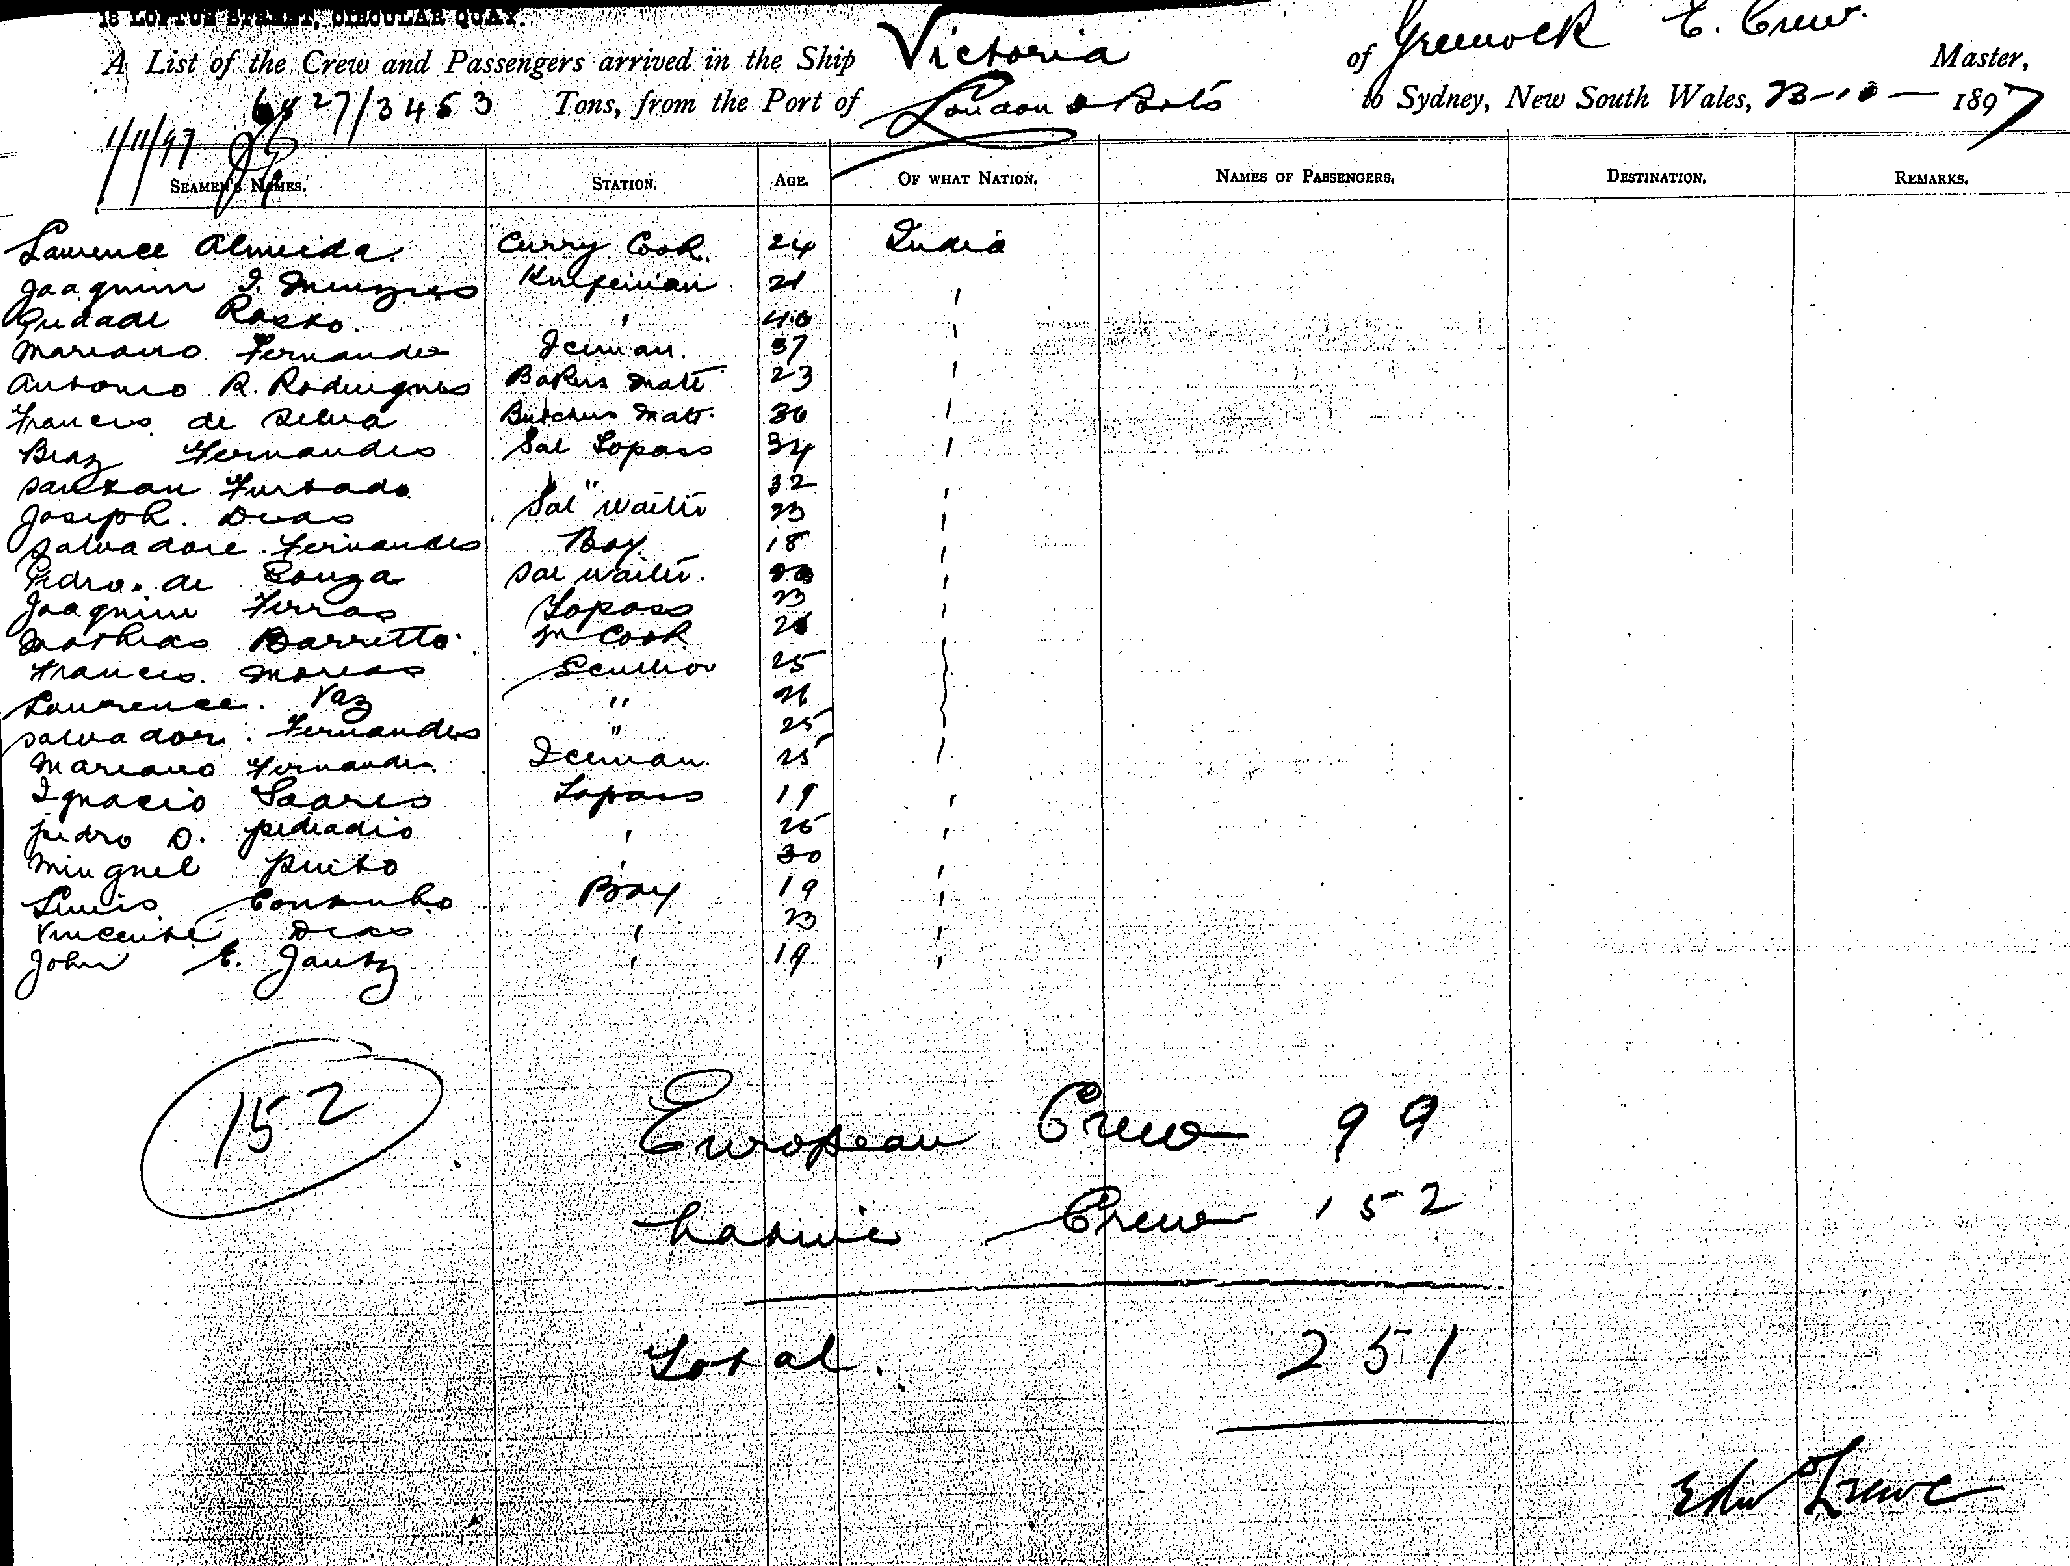 18 LOFTUS STREET, CIRCULAR QUAY.
A List of the Crew and Passengers arrived in the Ship Victoria of Greenock E. Crew Master,
6827/3453 Tons, from the Port of London & Ports to Sydney, New South Wales, 23-10- 1897
1/11/97
SEAMEN'S NAMES. STATION. AGE. OF WHAT NATION. NAMES OF PASSENGERS. DESTINATION. REMARKS.
Laurence Almeida Curry Cook. 24 India
Joaquim I. Menezes 21 '
Rosko. ' 40 '
Mariano Fernandes Iceman. 37 '
Antonio R. Rodrigues Bakers Mate 23 '
Francis de Silva Butchers Mate 30 '
Braz Fernandes Sal Topass 34 '
Santan Furtado " 32 '
Joseph. Dias Sal Waiter 23 '
Salvadore Fernandes Boy 18 '
Pedro. de Souza Sal Waiter. '
Joaquim Ferras Topass 23 '
Mathias Barretto. M Cook '
Francis Morias Scullion 25 '
Lawrence. Vaz " 26 '
Salvador. Fernandes " 25 '
Mariano Fernandes Iceman 25 '
Ignacio Soares Topass 19 '
Pedro D. ' 25 '
Minguel Pinto ' 30 '
Luis Coutinho Boy 19 '
Vincente Dias ' 23 '
John ' 19 '
152
European Crew 99
Native Crew 152
Total. 251
Edw Crewe